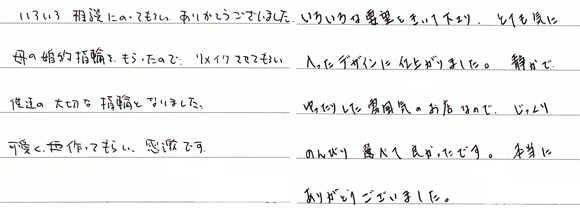 いろいろ 相談にのってもらい ありがとうございました。
母の婚約指輪を もらったので、 リメイクさせてもらい
僕達の 大切な 指輪と なりました。
可愛く 作ってもらい、 感激です。
いろいろな要望を きいて下さり、 とても気に
入ったデザインに 仕上がりました。 静かで、
ゆったりした 雰囲気の お店なので、 じっくり
のんびり 選べて 良かったです。 本当に
ありがとうございました。